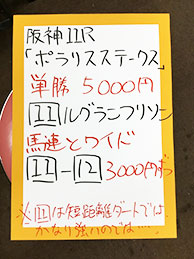 阪神11R
「ポラリスステークス」
単勝 5000円
11ルグランフリソン
馬連とワイド
11-12 3000円ずつ
※11は短距離ダートでは、
かなり強いのでは…。